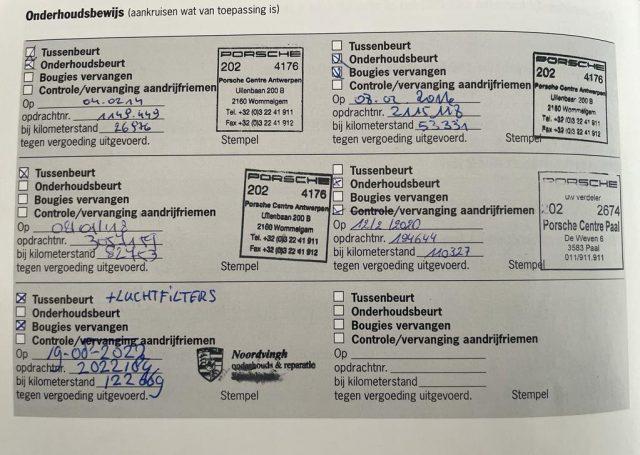 Onderhoudsbewijs (aankruisen wat van toepassing is)
Tussenbeurt
Onderhoudsbeurt
Bougies vervangen
Controle/vervanging aandrijfriemen
Op 04.02.14
opdrachtnr. 1149.449
bij kilometerstand 26976
tegen vergoeding uitgevoerd.
PORSCHE
202 4176
Porsche Centre Antwerpen
Uilenbaan 200 B
2160 Wommelgem
Tel. +32 (0)3 22 41 911
Fax +32 (0)3 22 41 912
Stempel
Tussenbeurt
Onderhoudsbeurt
Bougies vervangen
Controle/vervanging aandrijfriemen
Op 08.02.2016
opdrachtnr. 2115.118
bij kilometerstand 53.331
tegen vergoeding uitgevoerd.
PORSCHE
202 4176
Porsche Centre Antwerpen
Uilenbaan 200 B
2160 Wommelgem
Tel. +32 (0)3 22 41 911
Fax +32 (0)3 22 41 912
Stempel
Tussenbeurt
Onderhoudsbeurt
Bougies vervangen
Controle/vervanging aandrijfriemen
Op
opdrachtnr.
bij kilometerstand 82453
tegen vergoeding uitgevoerd.
PORSCHE
202 4176
Porsche Centre Antwerpen
Uilenbaan 200 B
2160 Wommelgem
Tel. +32 (0)3 22 41 911
Fax +32 (0)3 22 41 912
Stempel
Tussenbeurt
Onderhoudsbeurt
Bougies vervangen
Controle/vervanging aandrijfriemen
Op 12/2/2020
opdrachtnr. 194644
bij kilometerstand 110327
tegen vergoeding uitgevoerd.
PORSCHE
uw verdeler
202 2674
Porsche Centre Paal
De Weven 6
3583 Paal
011/911.911
Stempel
Tussenbeurt +LUCHTFILTERS
Onderhoudsbeurt
Bougies vervangen
Controle/vervanging aandrijfriemen
Op 19-08-2022
opdrachtnr.
bij kilometerstand 122669
tegen vergoeding uitgevoerd.
Noordvingh
onderhouds & reparatie
Stempel
Tussenbeurt
Onderhoudsbeurt
Bougies vervangen
Controle/vervanging aandrijfriemen
Op
opdrachtnr.
bij kilometerstand
tegen vergoeding uitgevoerd.
Stempel